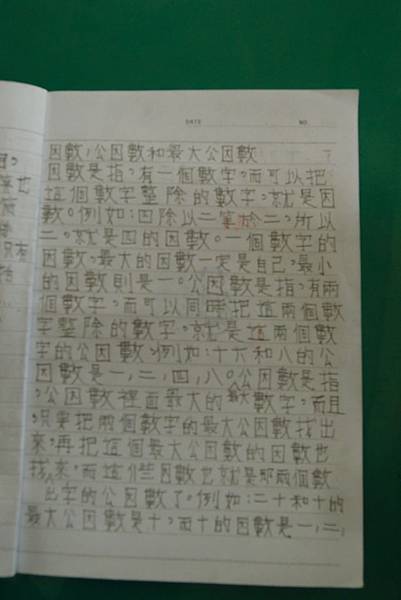 DATE NO.
因數,公因數和最大公因數
因數是指,有一個數字,而可以把
這個數字整除的數字,就是因
數。例如:四除以二等於二,所以
二,就是四的因數。一個數字的
因數,最大的因數一定是自己,最小
的因數則是一。公因數是指,有兩
個數字,而可以同時把這兩個數
字整除的數字,就是這兩個數
字的公因數,例如:十六和八的公
因數是一,二,四,八。公因數是指
,公因數裡面最大的數字,而且
,只要把兩個數字的最大公因數找出
來,再把這個最大公因數的因數也
找來,而這些因數也就是那兩個數
出字的公因數了。例如:二十和十的
最大公因數是十,而十的因數是一,二,
也
只有